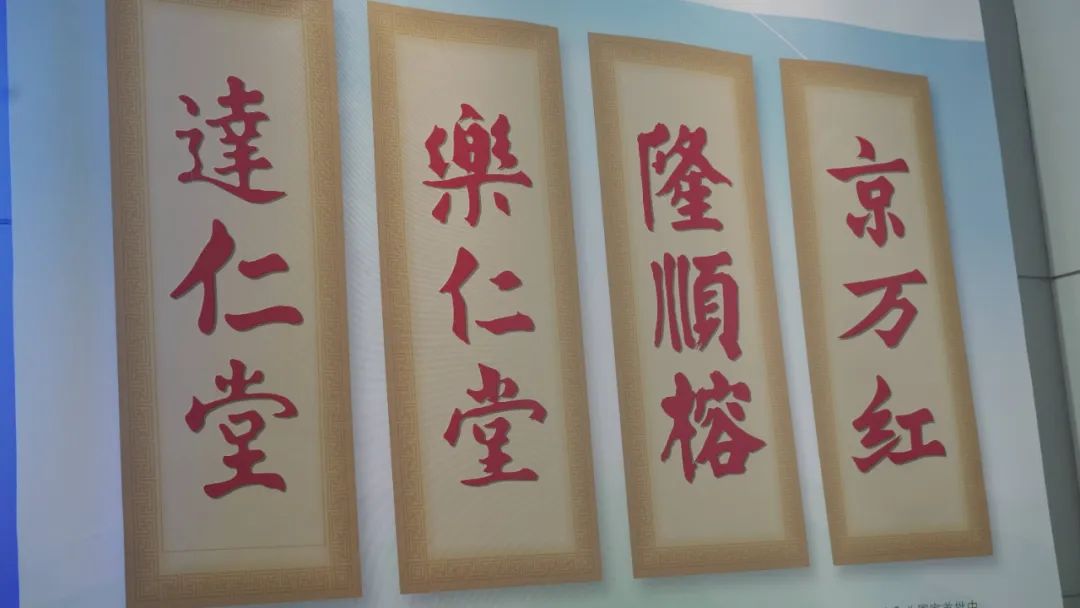 達仁堂
樂仁堂
隆順榕
京万红